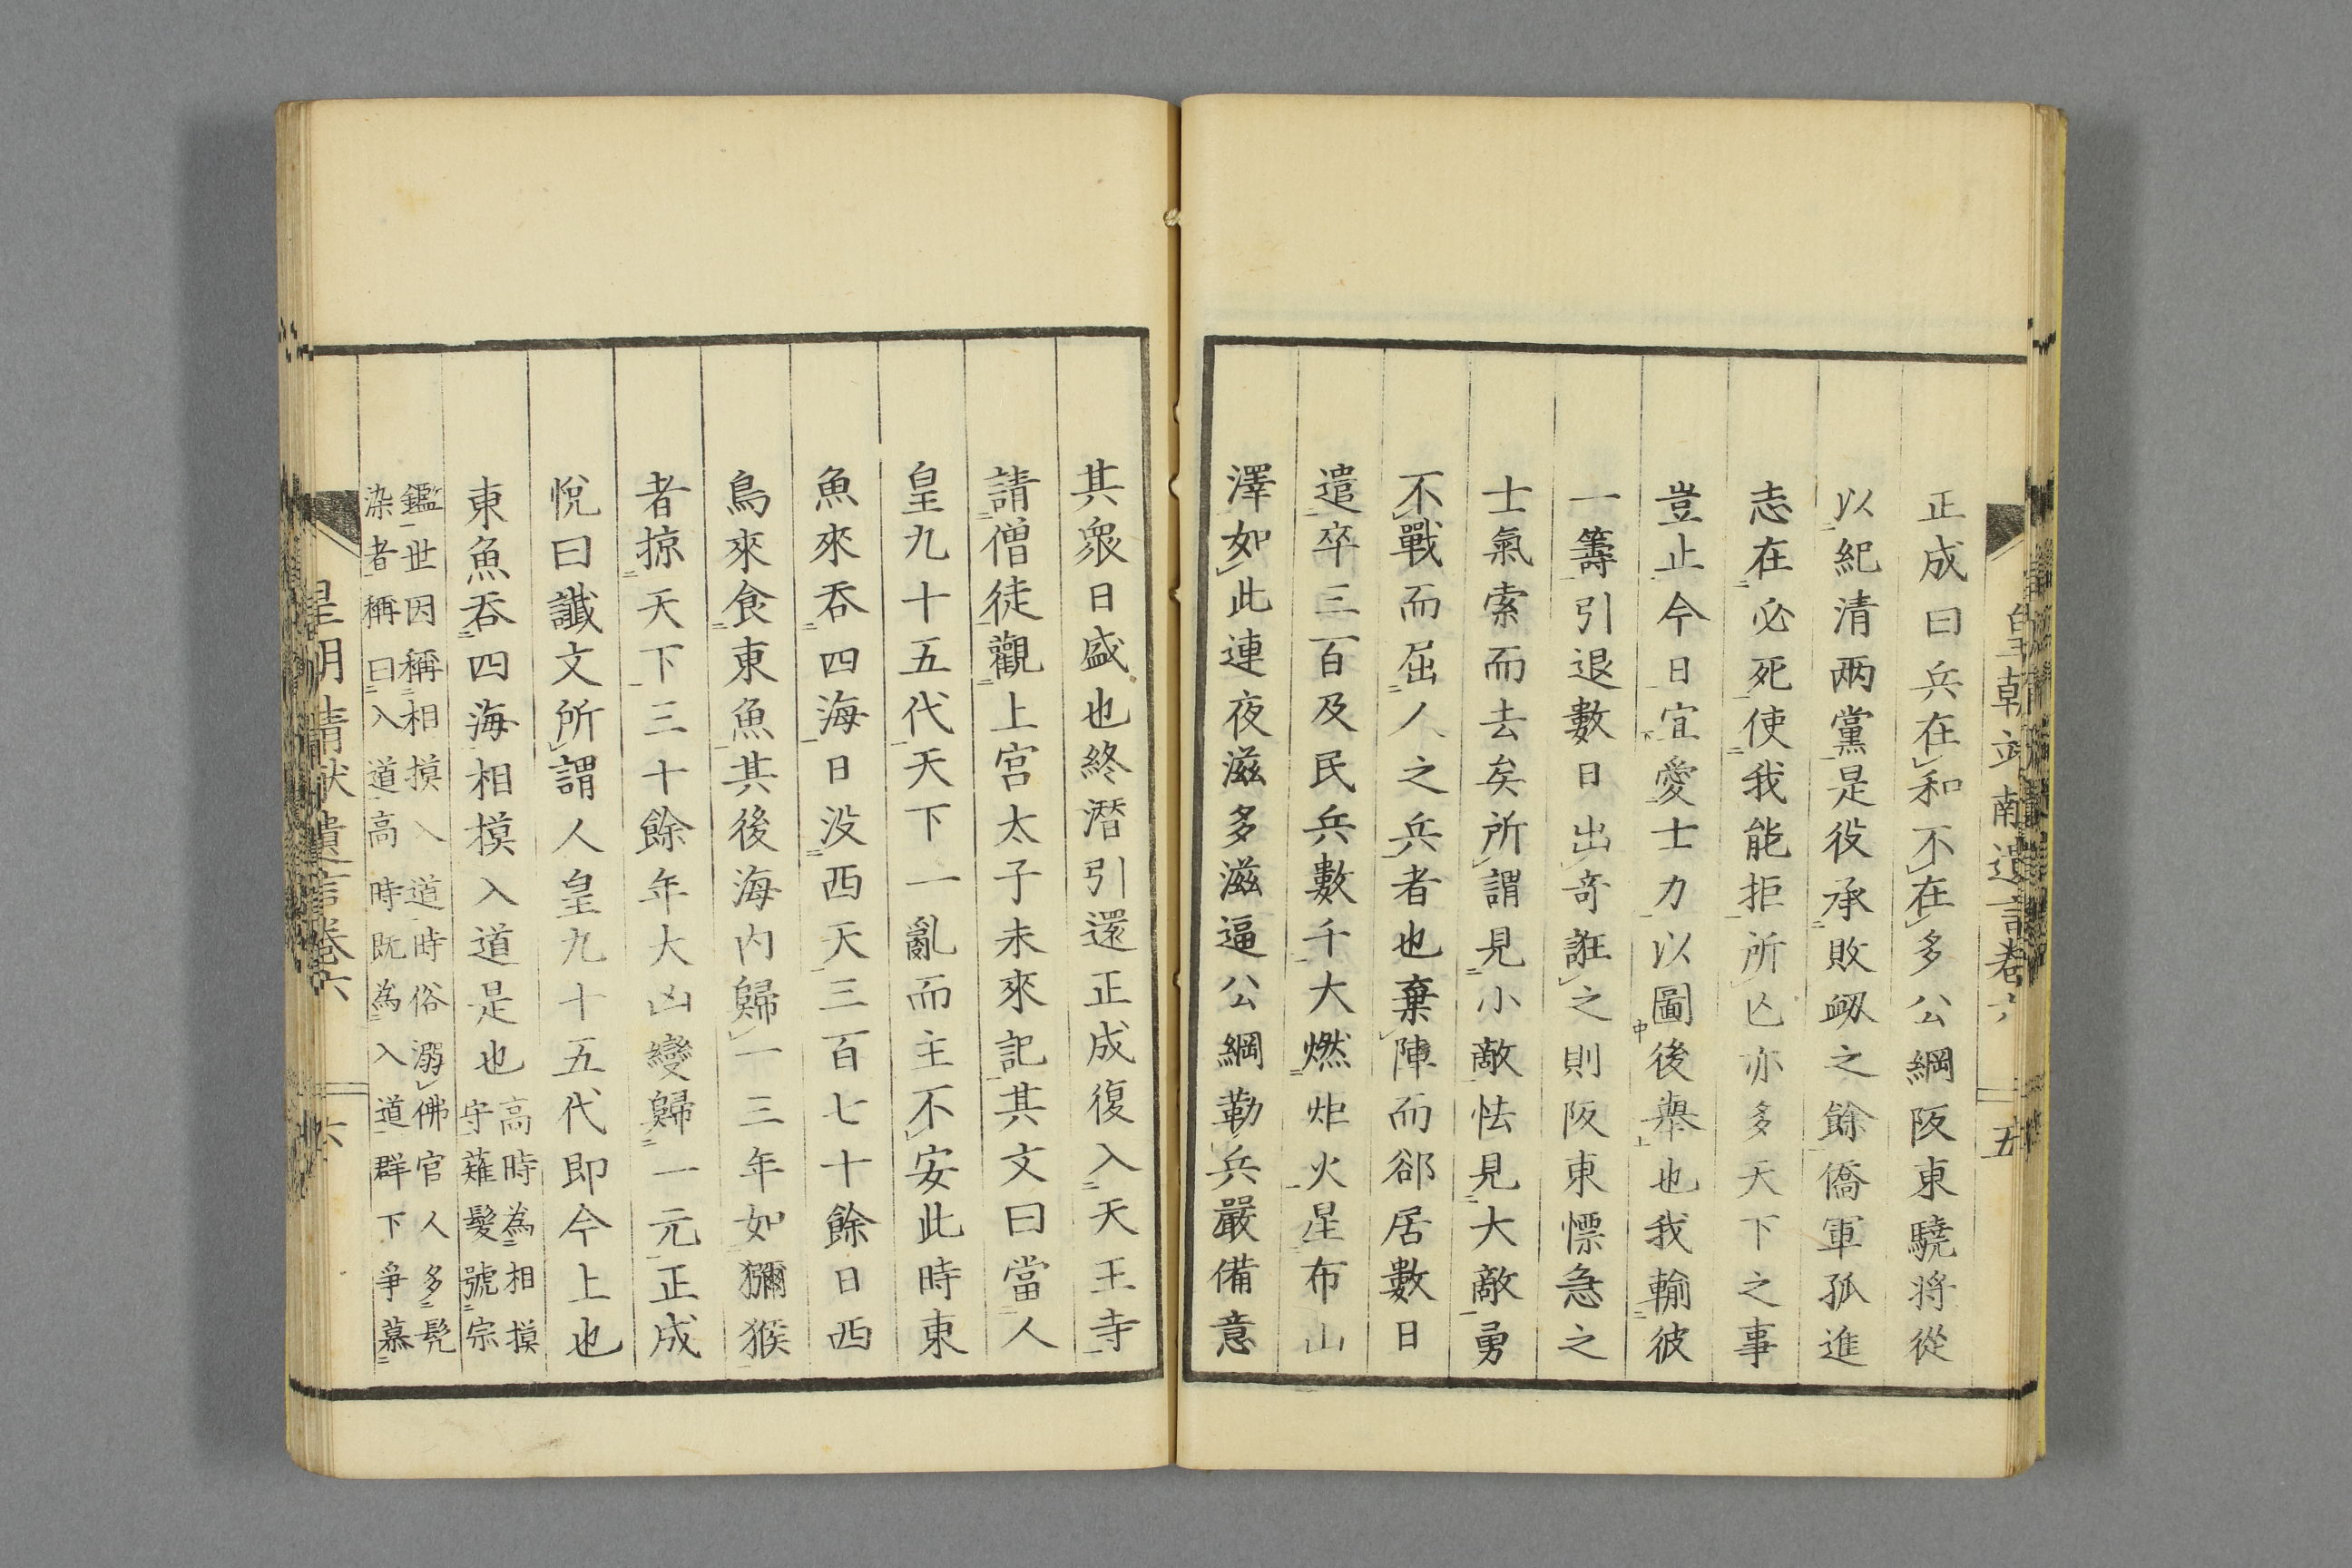 正成曰兵在和不在多公綱阪東驍將從
以紀清兩黨是役承敗衂之餘僑軍孤進
志在必死使我能拒所亡亦多天下之事
豈止今日宜愛士力以圖後舉也我輸彼
一籌引退數日出奇誑之則阪東慓急之
士氣索而去矣所謂見小敵怯見大敵勇
不戰而屈人之兵者也棄陣而郤居數日
遣卒三百及民兵數千大燃炬火星布山
澤如此連夜滋多滋逼公綱勒兵嚴備意
其衆日盛也終潛引還正成復入天王寺
請僧徒觀上宮太子未來記其文曰當人
皇九十五代天下一亂而主不安此時東
魚來吞四海日没西天三百七十餘日西
鳥來食東魚其後海內歸一三年如獼猴
者掠天下三十餘年大凶變歸一元正成
悅曰讖文所謂人皇九十五代即今上也
東魚吞四海相摸入道是也高時為相摸
守薙髮號宗
鑑世因稱相摸入道時俗溺佛官人多髡
染者稱曰入道高時既為入道群下爭慕